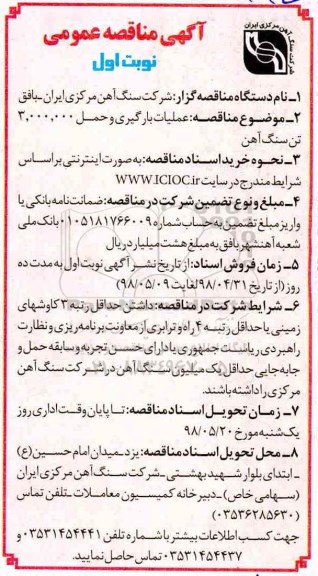 شرکت سنگ آهن مرکزی ایران
آگهی مناقصه عمومی
نوبت اول
۱ـ نام دستگاه مناقصه گزار: شرکت سنگ آهن مرکزی ایران ـ بافق
۲ـ موضوع مناقصه: عملیات بارگیری و حمل ۳,۰۰۰,۰۰۰
تن سنگ آهن
۳ـ نحوه خرید اسناد مناقصه: به صورت اینترنتی بر اساس
شرایط مندرج در سایت WWW.ICIOC.ir
۴ـ مبلغ و نوع تضمین شرکت در مناقصه: ضمانت نامه بانکی یا
واریز مبلغ تضمین به حساب شماره ۰۱۰۵۱۸۱۷۶۶۰۰۹ بانک ملی
شعبه آهنشهر بافق به مبلغ هشت میلیارد ریال
۵ـ زمان فروش اسناد: از تاریخ نشر آگهی نوبت اول به مدت ده
روز (از تاریخ ۹۸/۰۴/۳۱ لغایت ۹۸/۰۵/۰۹)
۶ـ شرایط شرکت در مناقصه: داشتن حداقل رتبه ۳ کاوشهای
زمینی یا حداقل رتبه ۴ راه و ترابری از معاونت برنامه ریزی و نظارت
راهبردی ریاست جمهوری یا دارای حسن تجربه و سابقه حمل و
جابه جایی حداقل یک میلیون تن سنگ آهن در شرکت سنگ آهن
مرکزی را داشته باشند.
۷ـ زمان تحویل اسناد مناقصه: تا پایان وقت اداری روز
یک شنبه مورخ ۹۸/۰۵/۲۰
۸ـ محل تحویل اسناد مناقصه: یزد ـ میدان امام حسین (ع)
ـ ابتدای بلوار شهید بهشتی ـ شرکت سنگ آهن مرکزی ایران
(سهامی خاص) ـ دبیرخانه کمیسیون معاملات ـ تلفن تماس
(۰۳۵۳۶۲۸۵۶۳۰)
جهت کسب اطلاعات بیشتر با شماره تلفن ۰۳۵۳۱۴۵۴۴۴۱ و
۰۳۵۳۱۴۵۴۴۳۷ تماس حاصل نمایید.